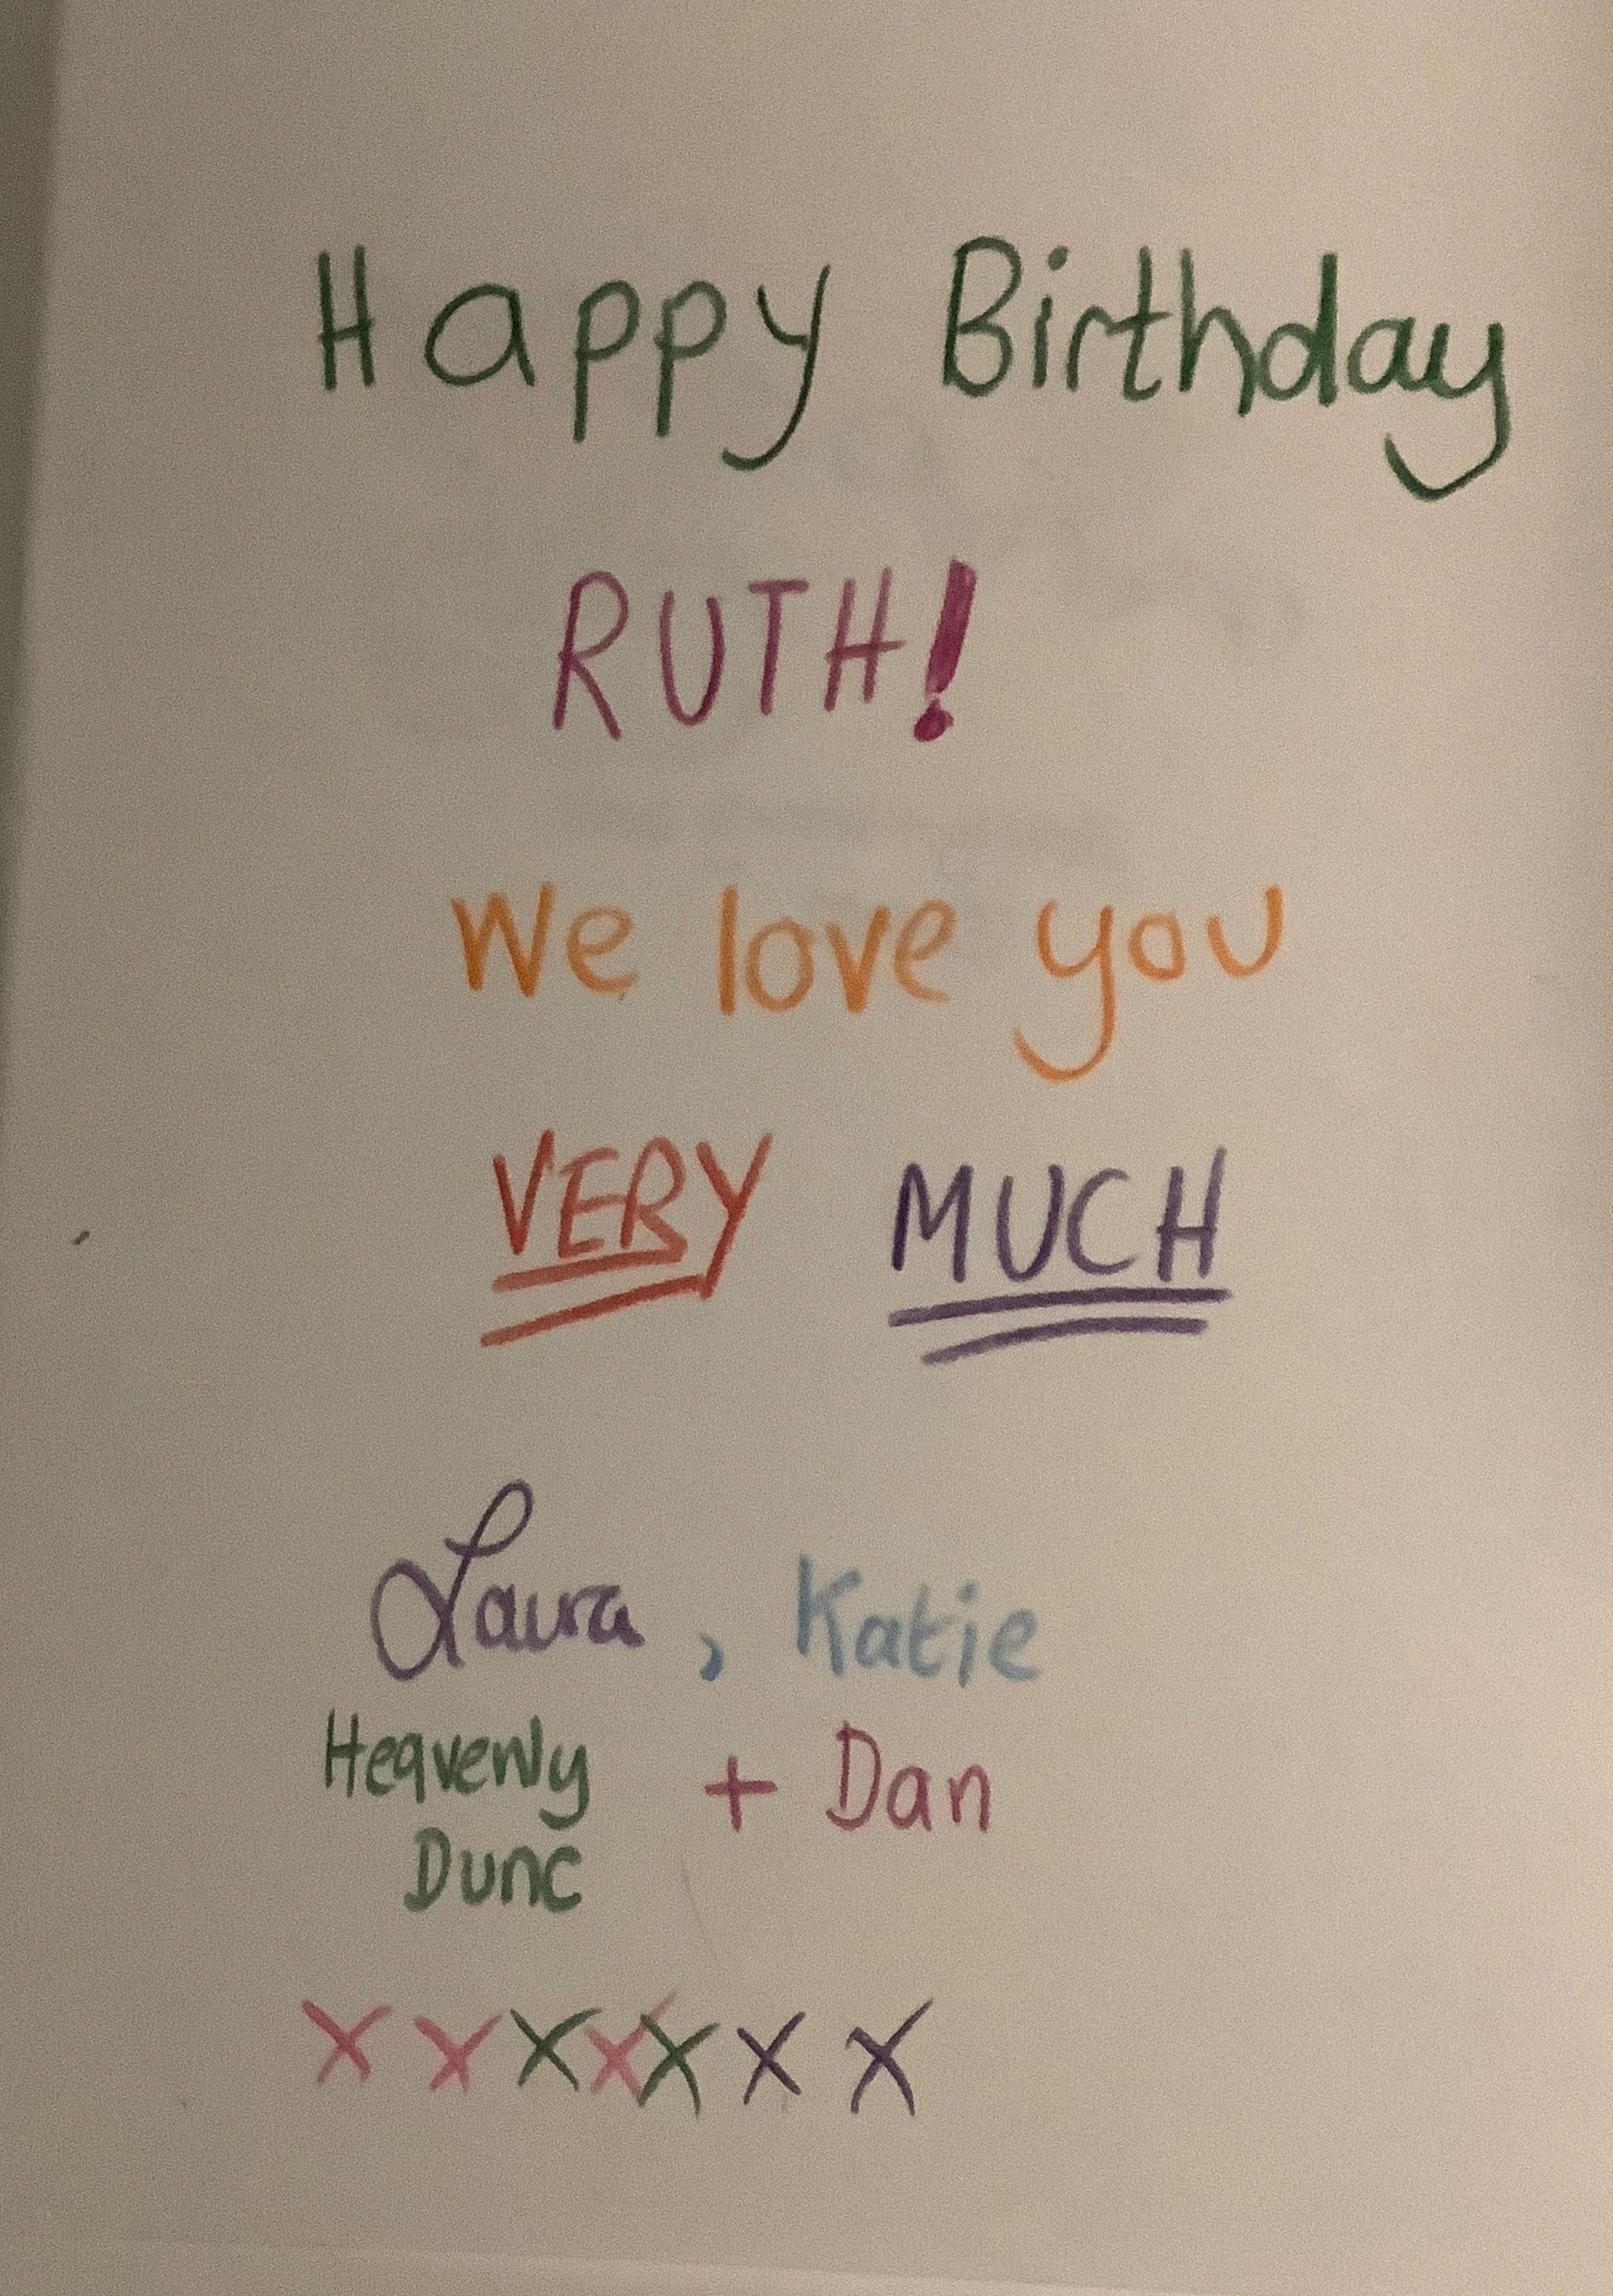 Happy Birthday
RUTH!
We love you
VERY MUCH
Laura, Katie
Heavenly + Dan
Dunc
x x x x x x x